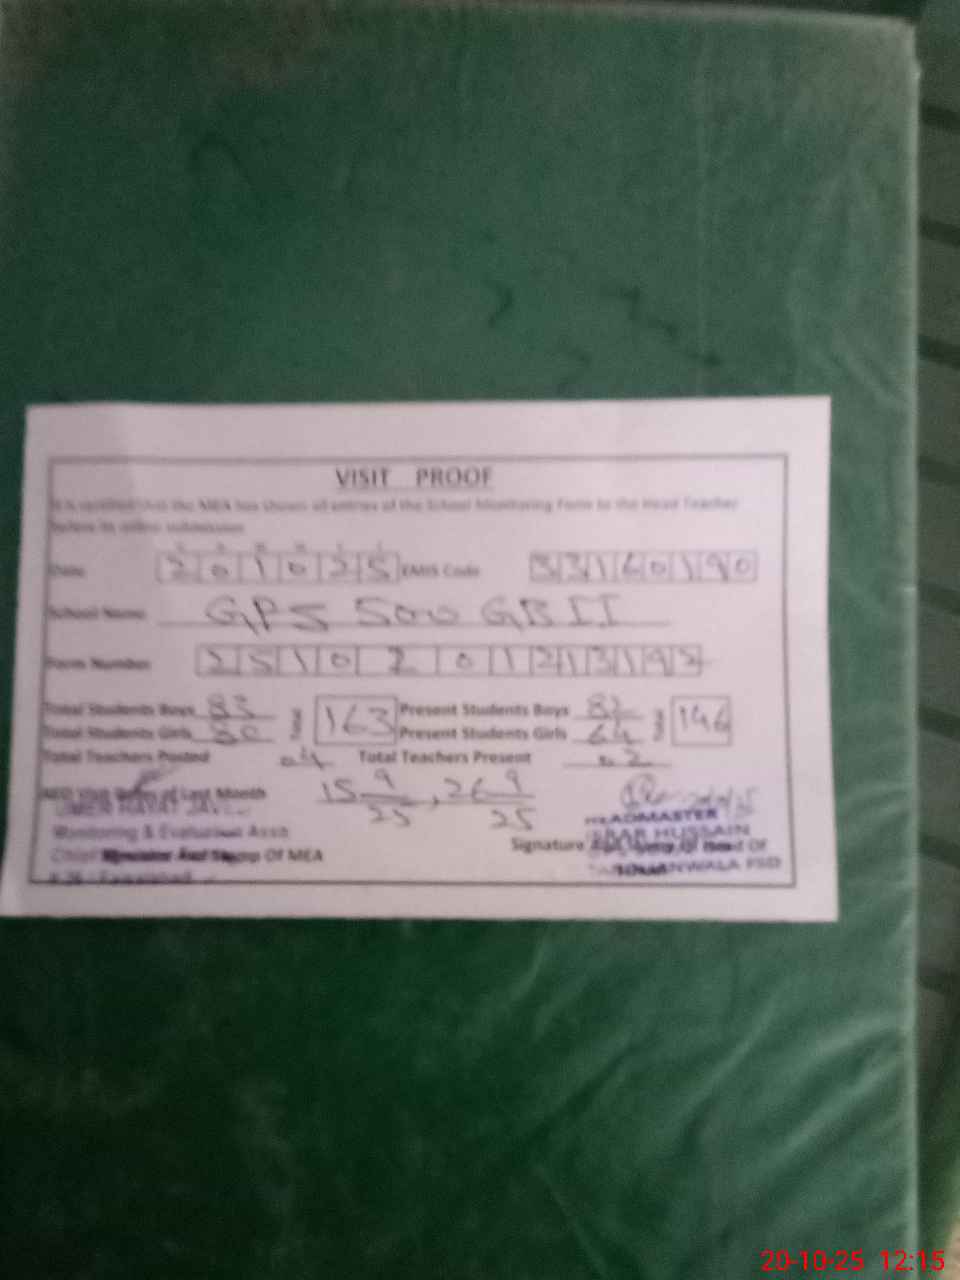 VISIT PROOF
It is certified that the MEA has shown all entries of the School Monitoring Form to the Head Teacher
before its online submission
Date 2 0 1 0 2 5 EMIS Code 3 3 1 6 0 1 9 0
School Name GPS 500 GB II
Form Number 2 5 1 0 2 0 1 2 1 3 1 9 2
Total Students Boys 83 Total 163 Present Students Boys 82 Total 146
Total Students Girls 80 Present Students Girls 64
Total Teachers Posted 04 Total Teachers Present 02
Visit Dates of Last Month 15 9/25, 26 9/25
HEADMASTER
Monitoring & Evaluation Asstt
HUSSAIN
Signature And Stamp Of MEA
Signature And Stamp Of Head Of
Faisalabad
20-10-25 12:15